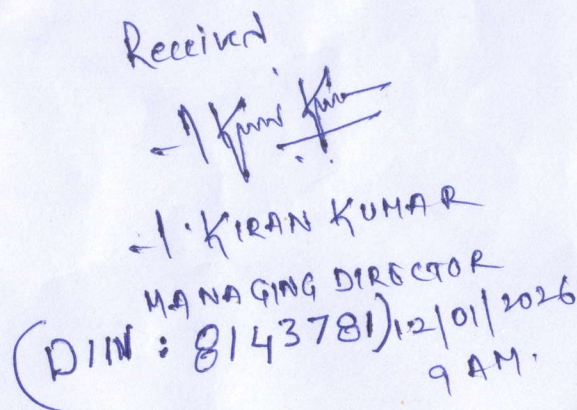 Received
KIRAN KUMAR
MANAGING DIRECTOR
(DIN : 8143781) 12/01/2026
9 AM.